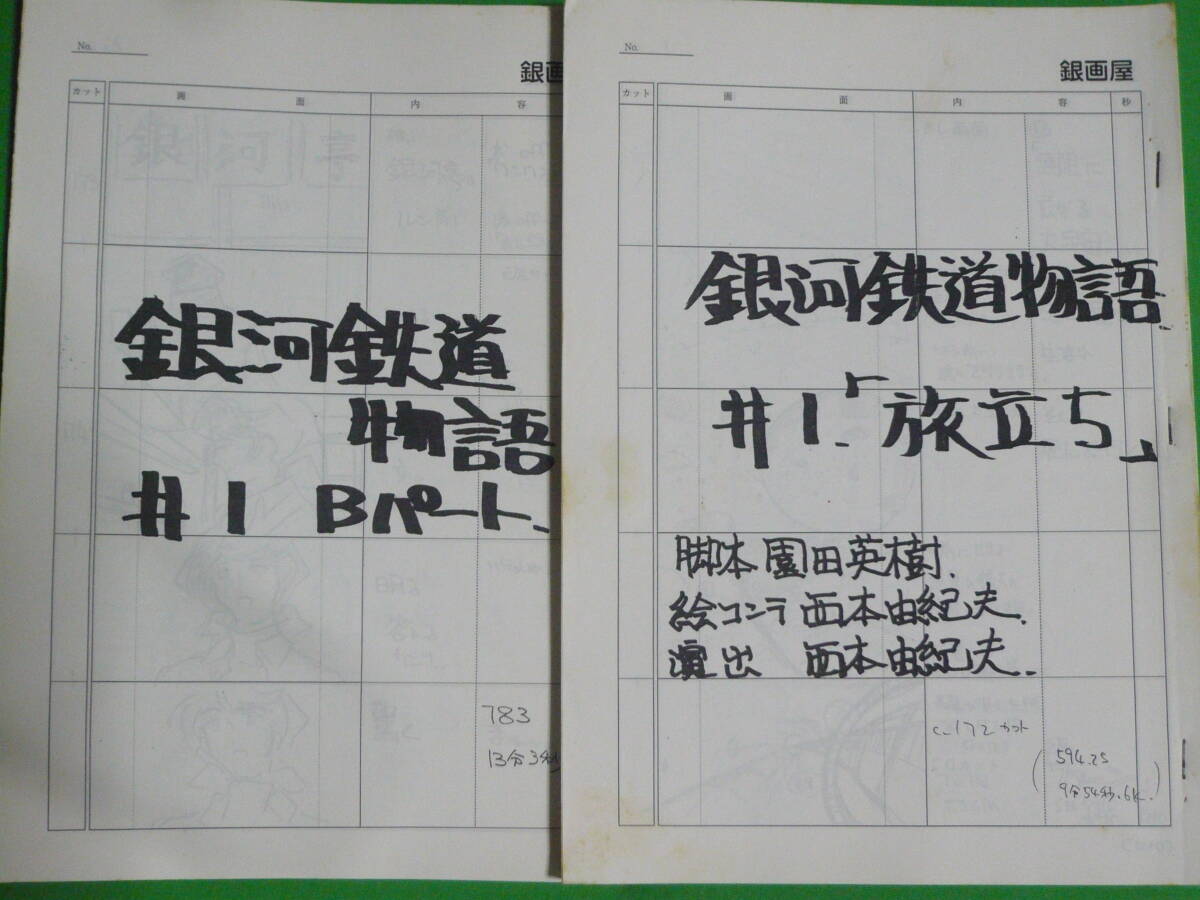 No.
銀画
カット 画 面 内 容
銀河鉄道
物語
#1 Bパート.
783
13分3秒
No.
銀画屋
カット 画 面 内 容 秒
銀河鉄道物語
#1.「旅立ち」
脚本 園田英樹.
絵コンテ 西本由紀夫.
演出 西本由紀夫.
c_172カット
(594.25
9分54秒.6K.)